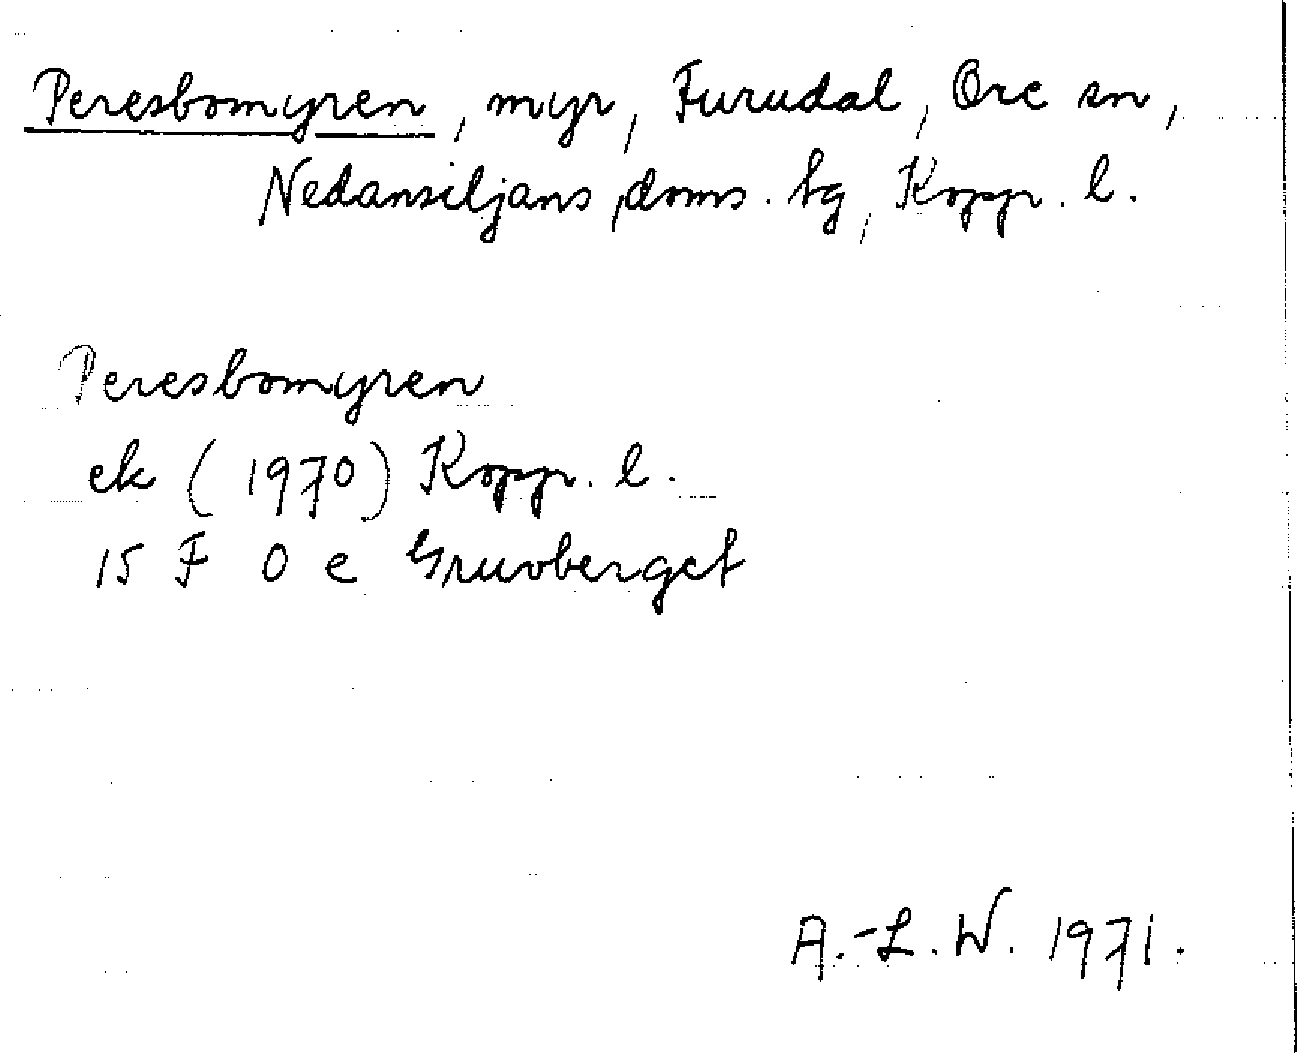 Peresbomyren, myr, Furudal, Ore sn,
Nedansiljans doms. tg, Koppr. l.
Peresbomyren
ek (1970) Koppr. l.
15 F 0 e Gruvberget
A.-L. W. 1971.